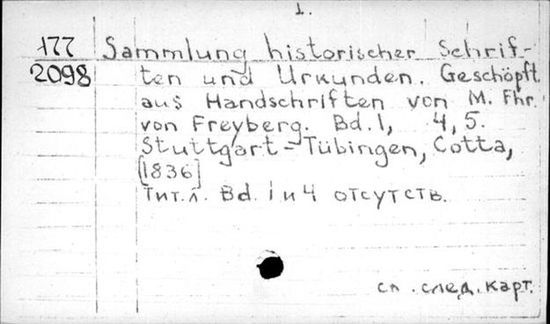 1.
177
2098
Sammlung historischer Schrif-
ten und Urkunden. Geschöpft
aus Handschriften von M. Fhr.
von Freyberg. Bd. 1, 4, 5.
Stuttgart-Tübingen, Cotta,
[1836]
Тит. л. Bd. 1 и 4 отсутств.
см. след. карт.